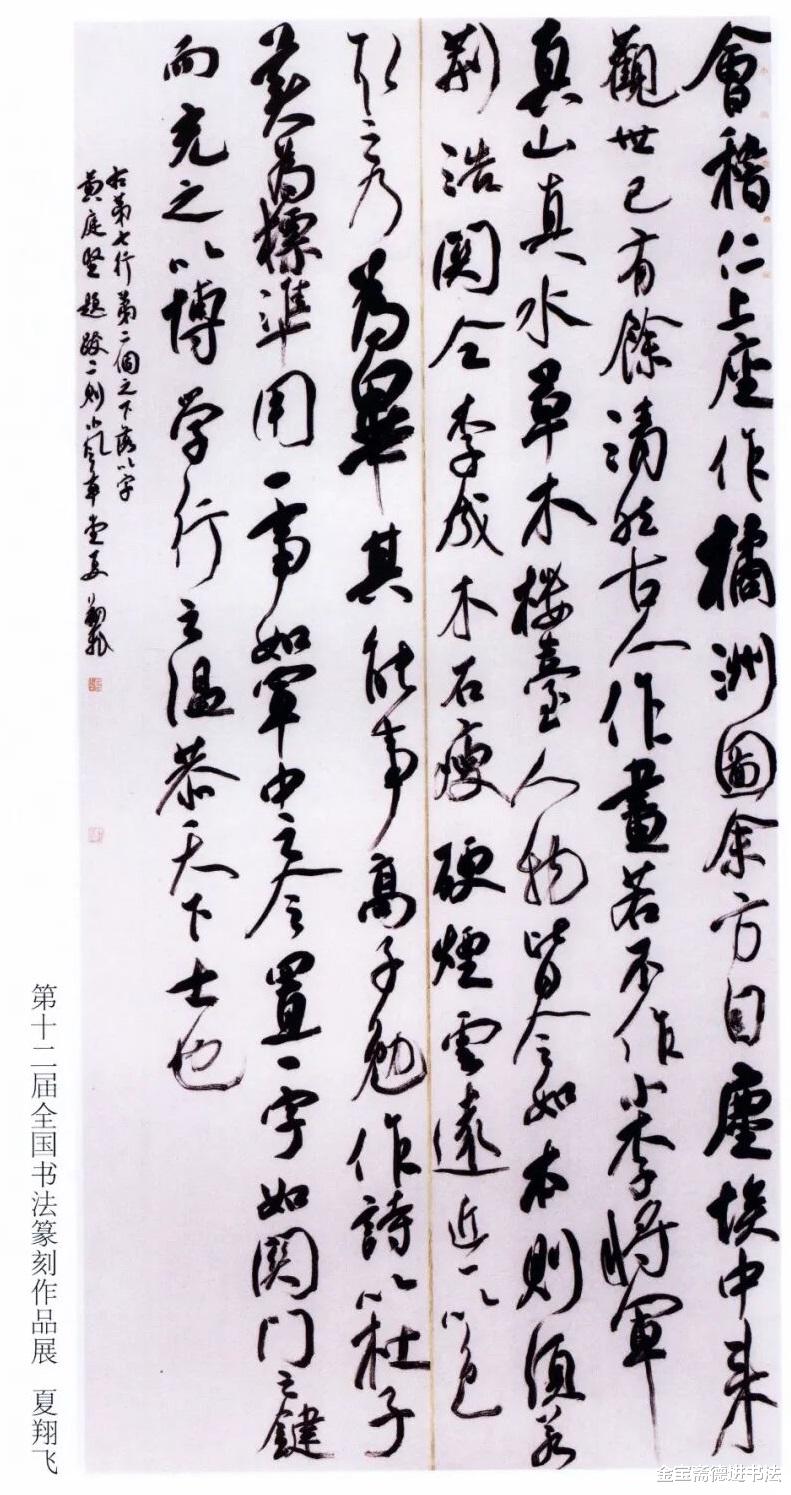 會稽仁上座作橘洲圖余方自塵埃中来
觀世已有餘清然古人作畫若不作小李將軍
真山真水草木樓臺人物皆令如本則須若
荊浩關仝李成木石瘦硬煙雲遠近一以色
取之乃為畢其能事高子勉作詩以杜子
美為標準用一事如軍中之令置一字如關門之鍵
而充之以博学行之温恭天下士也
右第七行第二個之下落以字
黄庭堅題跋二則 夏翔飛
第十二届全国书法篆刻作品展 夏翔飞
金宝斋德进书法